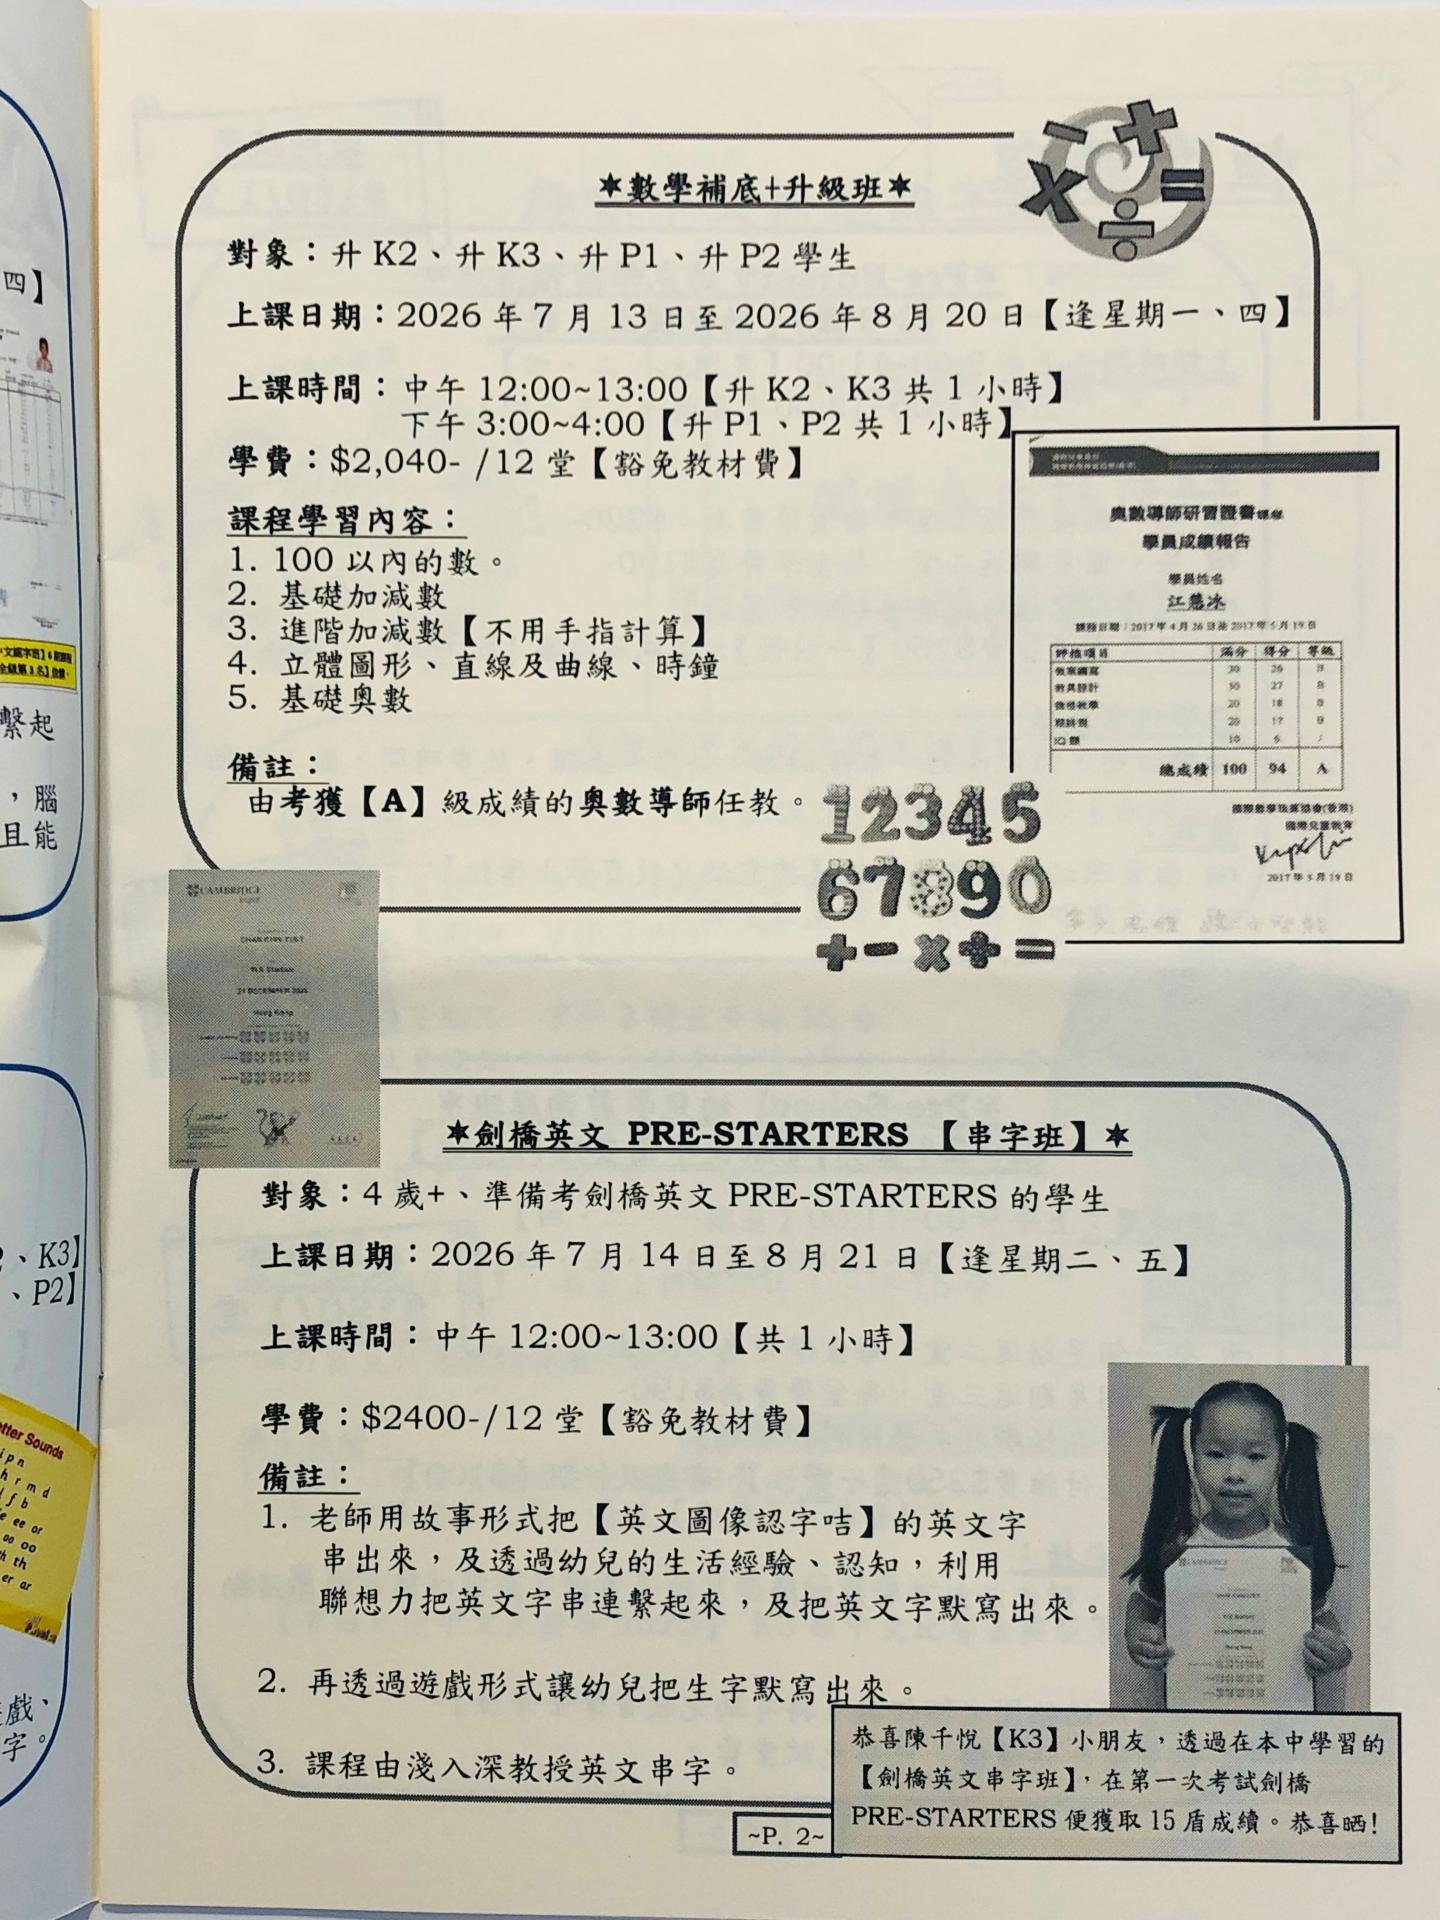 四】
文認字班】6
全級第1名】
繫起
，腦
且能
、K3】
、P2】
etter Sounds
i p n
h r m d
l f b
ee or
oo oo
th th
er ar
戲、
字。
✶數學補底+升級班✶
對象：升 K2、升 K3、升 P1、升 P2 學生
上課日期：2026 年 7 月 13 日至 2026 年 8 月 20 日【逢星期一、四】
上課時間：中午 12:00~13:00【升 K2、K3 共 1 小時】
下午 3:00~4:00【升 P1、P2 共 1 小時】
學費：$2,040- /12 堂【豁免教材費】
課程學習內容：
1. 100 以內的數。
2. 基礎加減數
3. 進階加減數【不用手指計算】
4. 立體圖形、直線及曲線、時鐘
5. 基礎奧數
備註：
由考獲【A】級成績的奧數導師任教。
奧數導師研習證書課程
學員成績報告
學員姓名
江慧冰
課程日期：2017 年 4 月 26 日至 2017 年 5 月 19 日
評核項目 滿分 得分 等級
30 26
27
20 18
20 17
IQ 題 10 6 /
總成績 100 94 A
國際數學珠算協會(香港)
國際兒童教育
2017 年 5 月 19 日
12345
67890
+-×÷=
CAMBRIDGE
English
21 DECEMBER 2025
Hong Kong
✶劍橋英文 PRE-STARTERS 【串字班】✶
對象：4 歲+、準備考劍橋英文 PRE-STARTERS 的學生
上課日期：2026 年 7 月 14 日至 8 月 21 日【逢星期二、五】
上課時間：中午 12:00~13:00【共 1 小時】
學費：$2400-/12 堂【豁免教材費】
備註：
1. 老師用故事形式把【英文圖像認字咭】的英文字
串出來，及透過幼兒的生活經驗、認知，利用
聯想力把英文字串連繫起來，及把英文字默寫出來。
2. 再透過遊戲形式讓幼兒把生字默寫出來。
3. 課程由淺入深教授英文串字。
恭喜陳千悅【K3】小朋友，透過在本中學習的
【劍橋英文串字班】，在第一次考試劍橋
PRE-STARTERS 便獲取 15 盾成績。恭喜晒!
~P. 2~